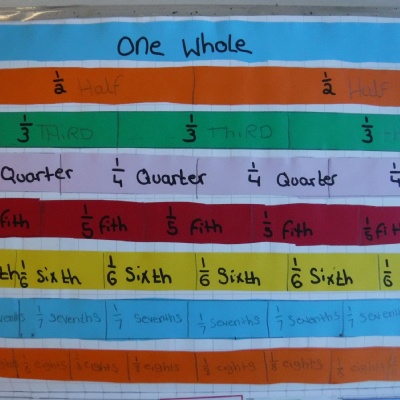 One Whole
1/2 Half 1/2 Half
1/3 THIRD 1/3 THIRD 1/3
Quarter 1/4 Quarter 1/4 Quarter 1/4
fith 1/5 fith 1/5 fith 1/5 fith 1/5 fi
th 1/6 Sixth 1/6 Sixth 1/6 Sixth 1/6 Sixth 1/6
1/7 Sevenths 1/7 Sevenths 1/7 Sevenths 1/7 Sevenths 1/7
eights 1/8 eights 1/8 eights 1/8 eights 1/8 eights